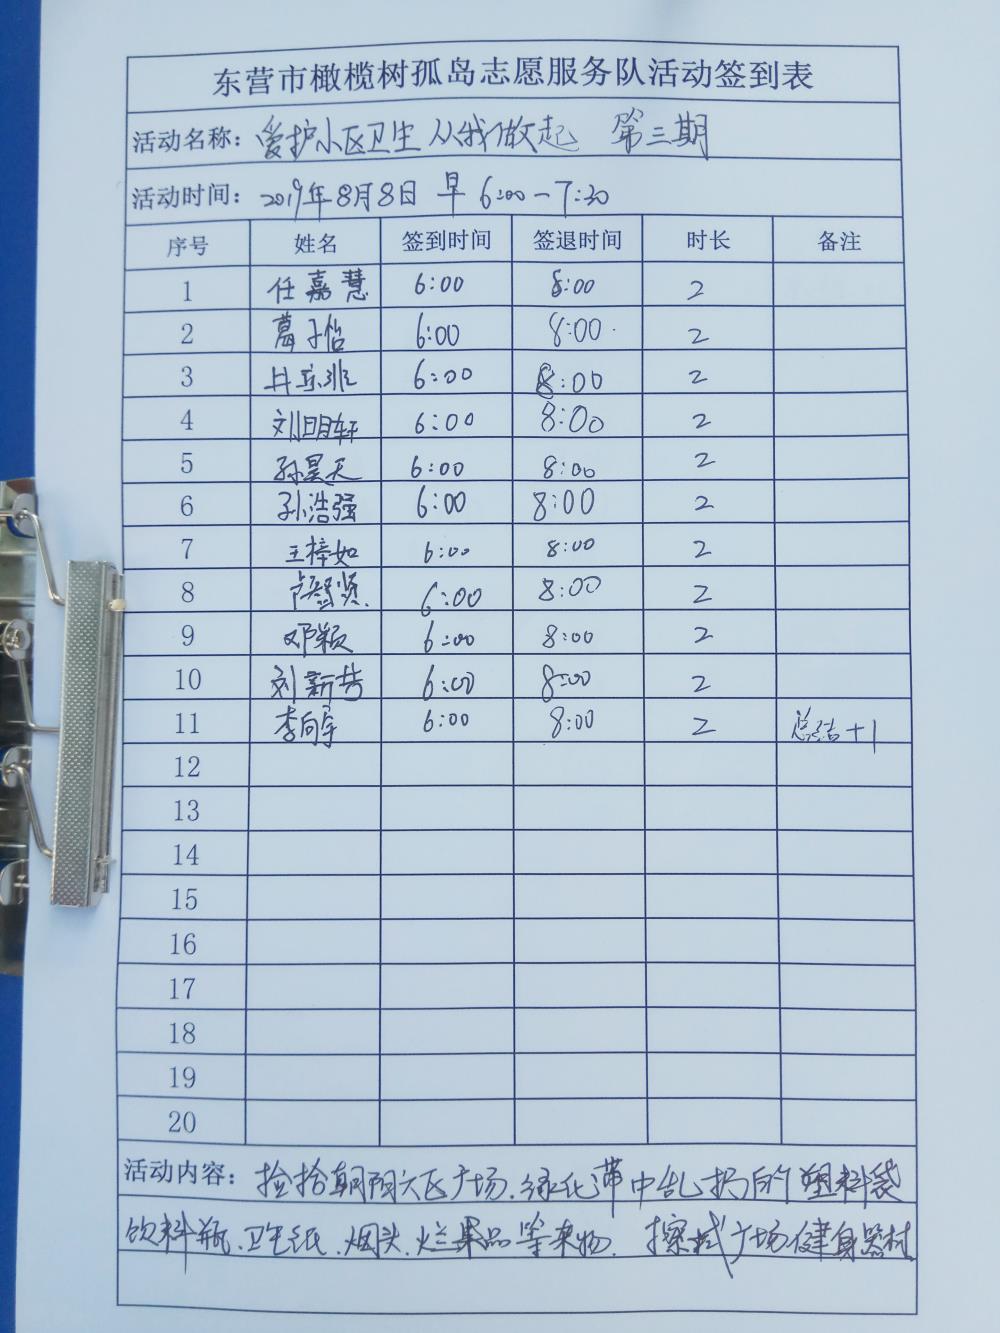 东营市橄榄树孤岛志愿服务队活动签到表
活动名称：爱护小区卫生 从我做起 第三期
活动时间：2019年8月8日 早 6:00—7:30
序号 姓名 签到时间 签退时间 时长 备注
1 任嘉慧 6:00 8:00 2
2 葛子怡 6:00 8:00 2
3 6:00 8:00 2
4 刘明轩 6:00 8:00 2
5 孙昊天 6:00 8:00 2
6 孙浩强 6:00 8:00 2
7 王梓如 6:00 8:00 2
8 卢智贤 6:00 8:00 2
9 邓颖 6:00 8:00 2
10 刘新芳 6:00 8:00 2
11 李向宇 6:00 8:00 2 总结+1
12
13
14
15
16
17
18
19
20
活动内容：捡拾朝阳六区广场、绿化带中乱扔的塑料袋
饮料瓶、卫生纸、烟头、烂果品等杂物、擦拭广场健身器材